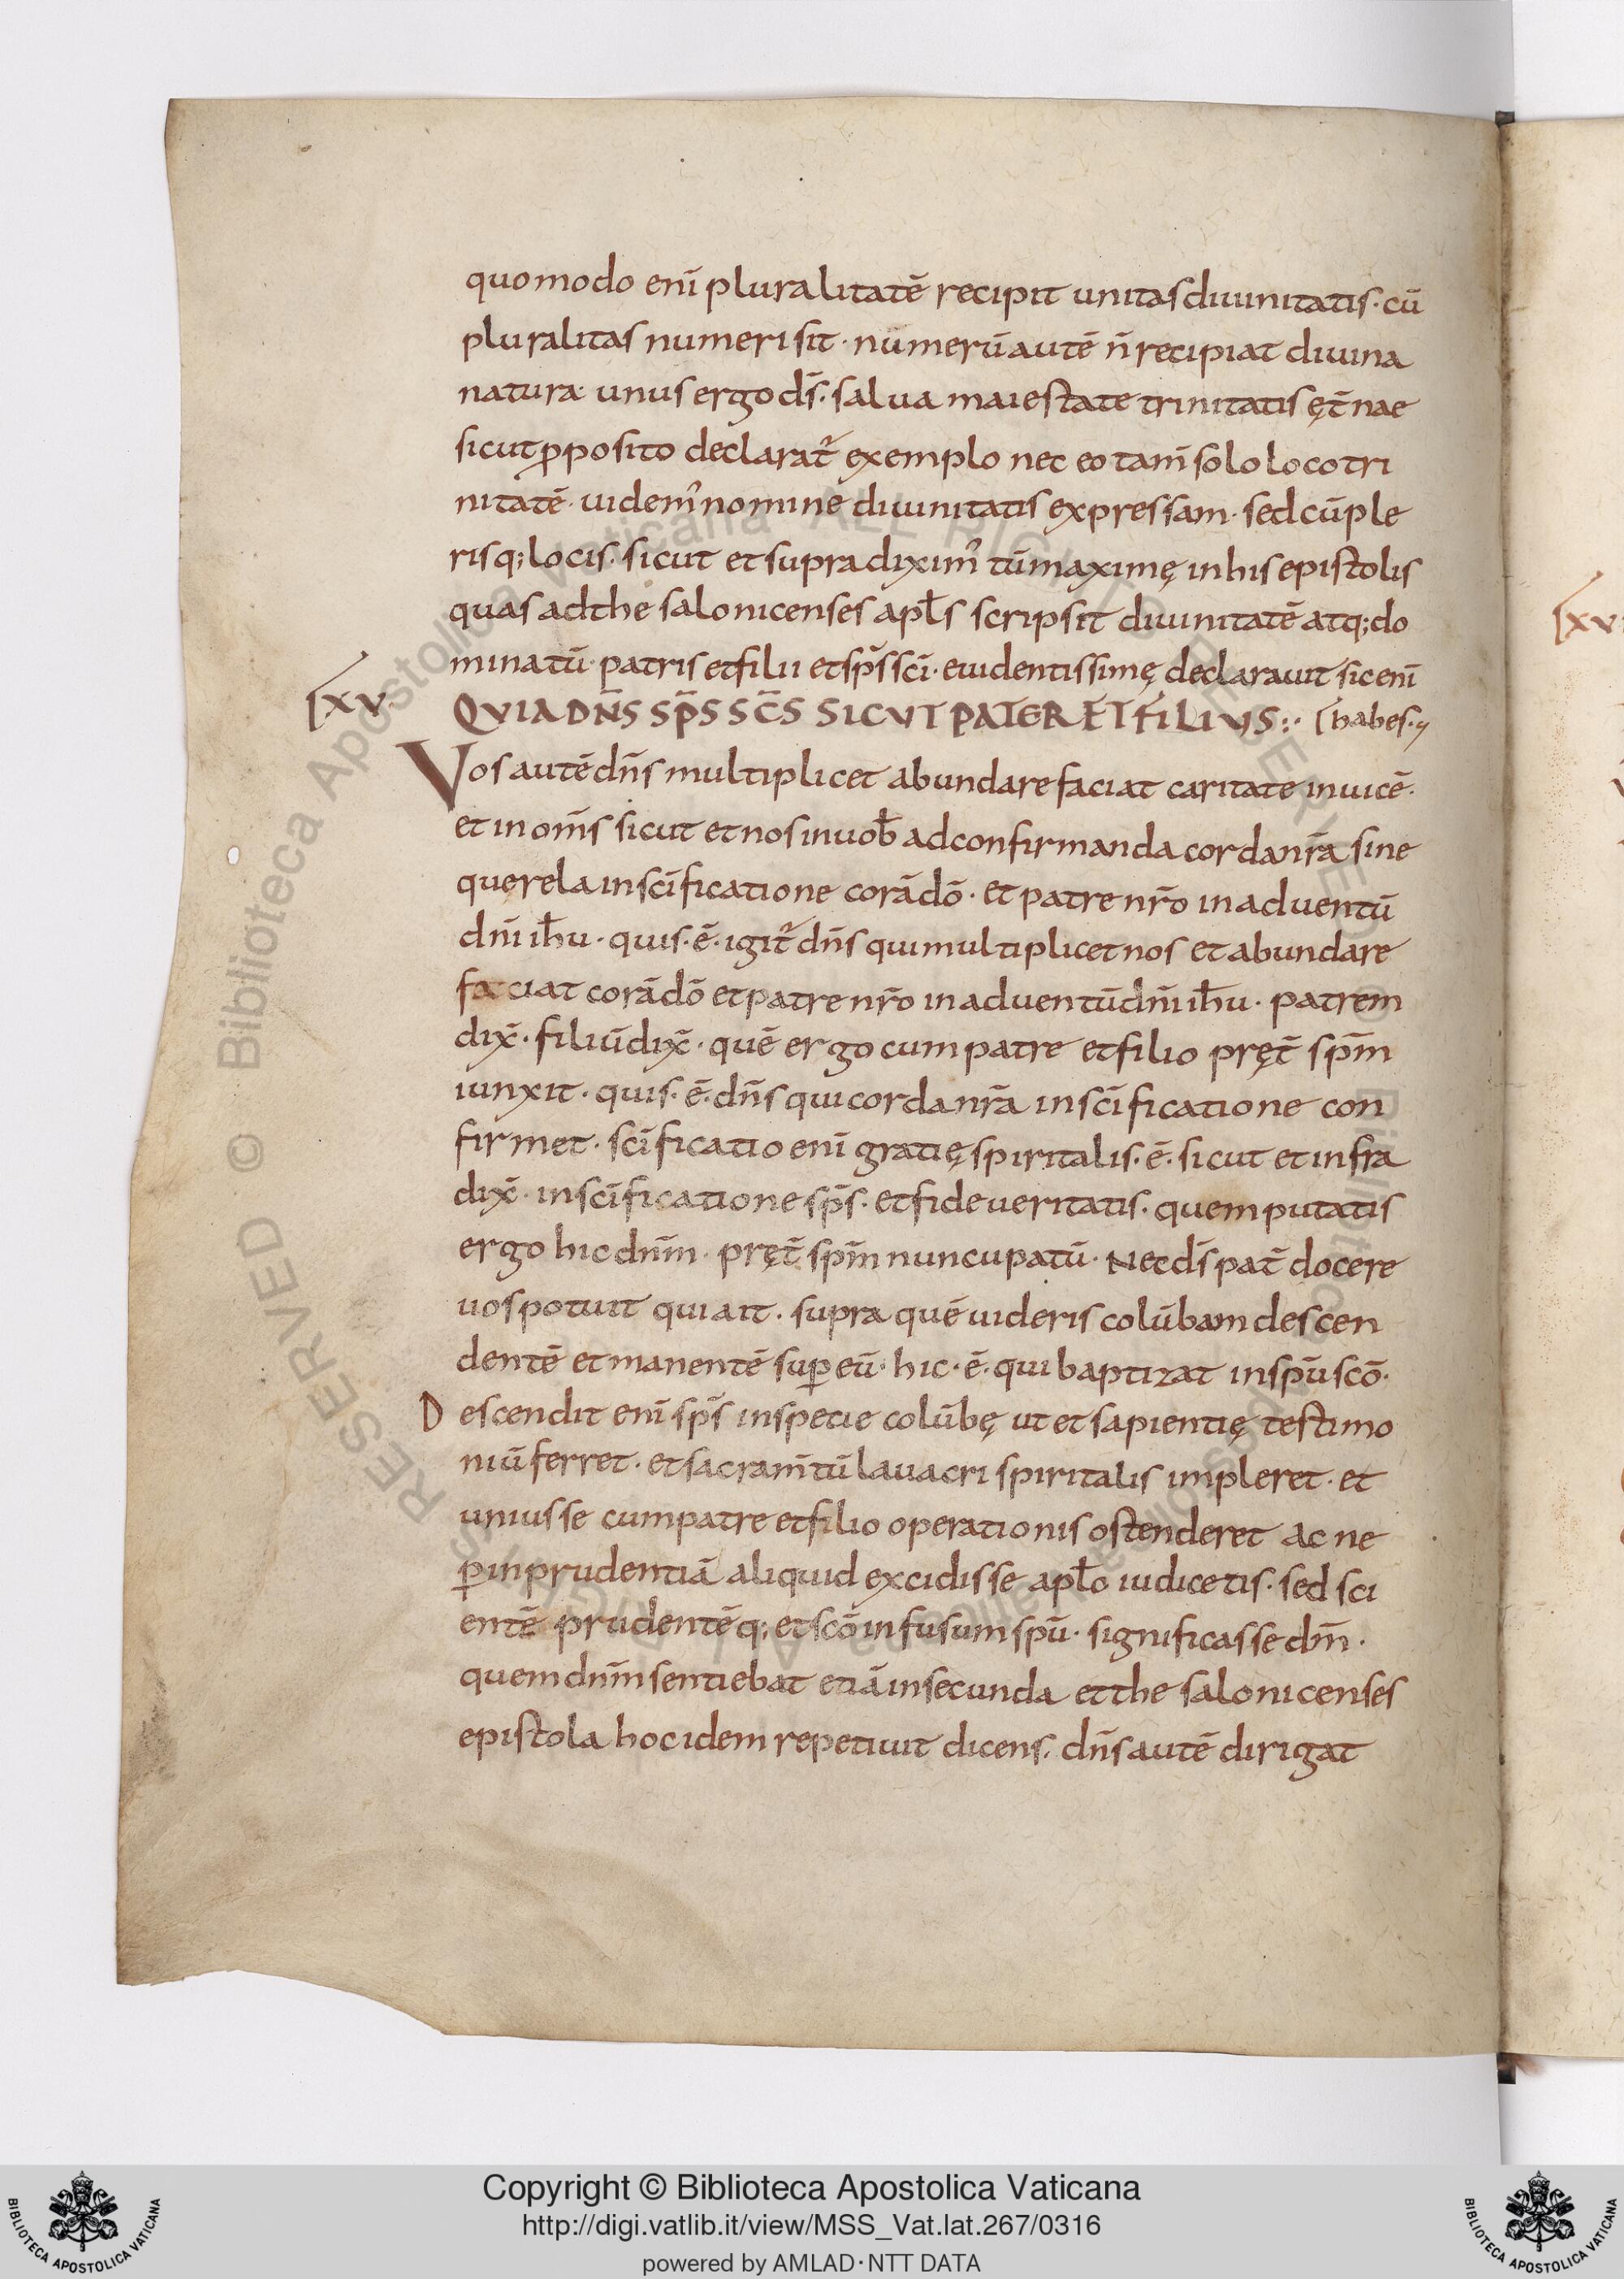 quomodo enī pluralitatē recipit unitas diuinitatis · cū
pluralitas numeri sit · numerū autē n̄ recipiat diuina
natura · unus ergo d̄s · salua maiestate trinitatis ęt̄nae
sicut ꝓposito declarat᷑ exemplo nec eo tam̄ solo loco tri
nitatē · uidem᾽ nomine diuinitatis expressam · sed cū ple
risq; locis · sicut et supra dixim᾽ tū maximę in his epistolis
quas ad thesalonicenses apl̄s scripsit diuinitatē atq; do
minatū · patris et filii et sp̄s sc̄i · euidentissimę declarauit sic enī
XV
QVIA DN̄S SP̄S SC̄S SICVT PATER ET FILIVS :· habes ·
Vos autē dn̄s multiplicet abundare faciat caritate inuicē ·
et in om̄s sicut et nos in uob̄ ad confirmanda corda nr̄a sine
querela in sc̄ificatione corā dō · et patre nr̄o in aduentū
dn̄i ih̄u · quis · ē · igit᷑ dn̄s qui multiplicet nos et abundare
faciat corā dō et patre nr̄o in aduentū dn̄i ih̄u · patrem
dix̄ · filiū dix̄ · quē ergo cum patre et filio pręt̄ sp̄m
iunxit · quis · ē · dn̄s qui corda nr̄a in sc̄ificatione con
firmet · sc̄ificatio enī gratię spiritalis · ē · sicut et infra
dix̄ · in sc̄ificatione sp̄s · et fide ueritatis · quem putatis
ergo hic dn̄m · pręt̄ sp̄m nuncupatū · Nec d̄s pat̄ docere
uos potuit qui ait · supra quē uideris colūbam descen
dentē et manentē suꝑ eū · hic · ē · qui baptizat in spū scō ·
Descendit enī sp̄s in specie colūbę ut et sapientię testimo
niū ferret · et sacram̄tū lauacri spiritalis impleret · et
unius se cum patre et filio operationis ostenderet ac ne
ꝑ inprudentiā aliquid excidisse apl̄o iudicetis · sed sci
entē prudentēq; et scō infusum spū · significasse dn̄m ·
quem dn̄m sentiebat etiā in secunda et thesalonicenses
epistola hoc idem repetiuit dicens · dn̄s autē dirigat
Copyright © Biblioteca Apostolica Vaticana
http://digi.vatlib.it/view/MSS_Vat.lat.267/0316
powered by AMLAD · NTT DATA